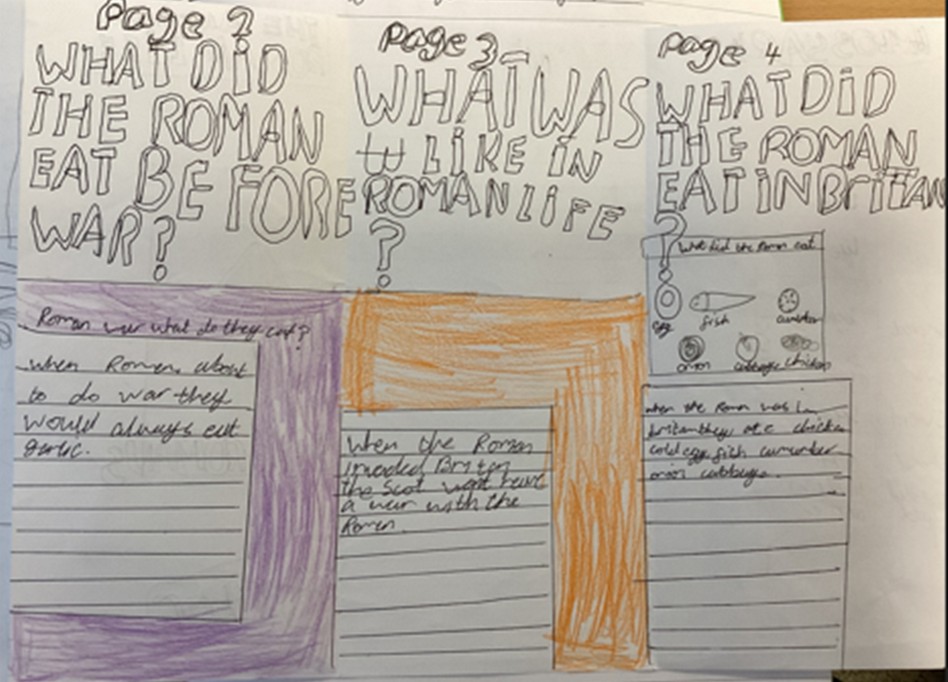 Page 2
WHAT DiD
THE ROMAN
EAT BE FORE
WAR?
Roman war what do they eat?
when Roman about
to do war they
would always eat
garlic.
Page 3
WHAT WAS
LIKE IN
ROMAN LIFE
?
when the Roman
invaded Briten
the Scot want have
a war with the
Roman
Page 4
WHAT DiD
THE ROMAN
EAT iN BRiTAN
?
What did the Roman eat
egg
fish
onion
cabbage
chicken
when the Roman was in
britan they ate chicken
cold egg fish cumumber
onion cabbage.